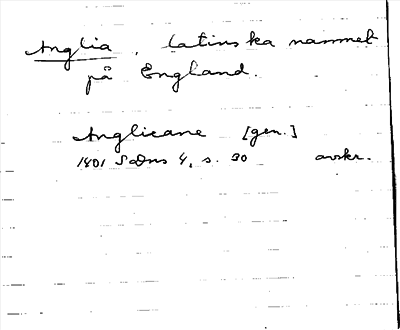 Anglia, latinska namnet
på England.
Anglicane [gen.]
1401 SDns 4, s. 30 avskr.